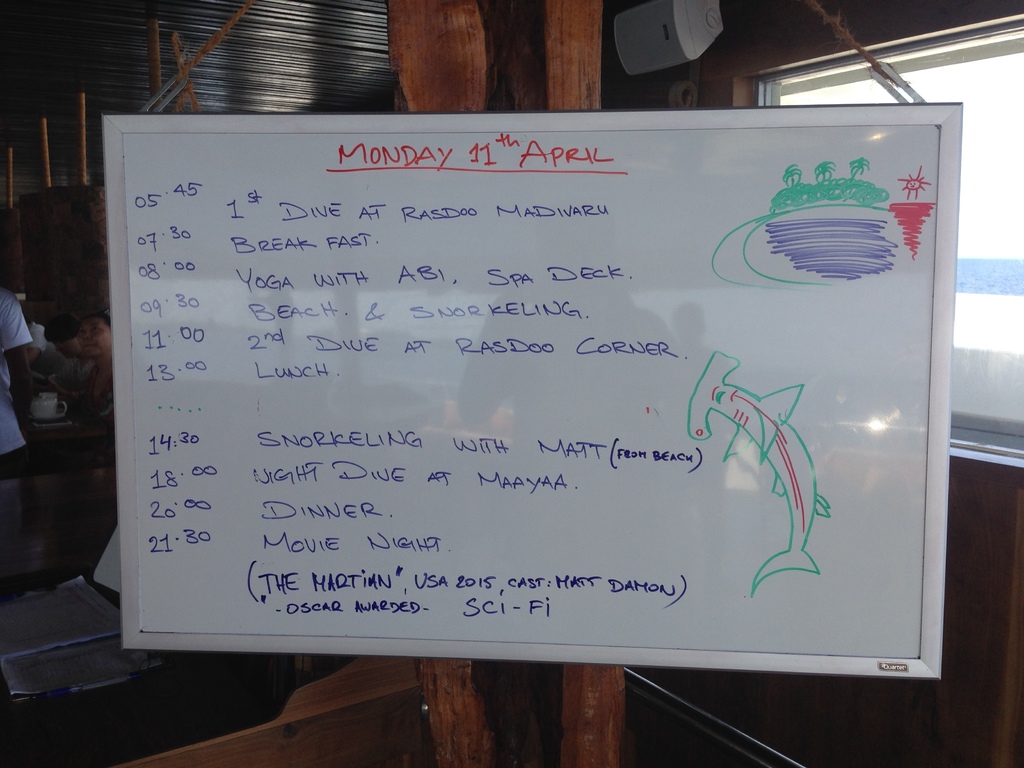 MONDAY 11th APRIL
05.45 1st DIVE AT RASDOO MADIVARU
07.30 BREAK FAST.
08.00 YOGA WITH ABI, SPA DECK.
09.30 BEACH. & SNORKELING.
11.00 2nd DIVE AT RASDOO CORNER.
13.00 LUNCH.
.....
14:30 SNORKELING WITH MATT (FROM BEACH)
18.00 NIGHT DIVE AT MAAYAA.
20.00 DINNER.
21.30 MOVIE NIGHT.
("THE MARTIAN", USA 2015, CAST: MATT DAMON)
"-OSCAR AWARDED- SCI-FI
Quartet